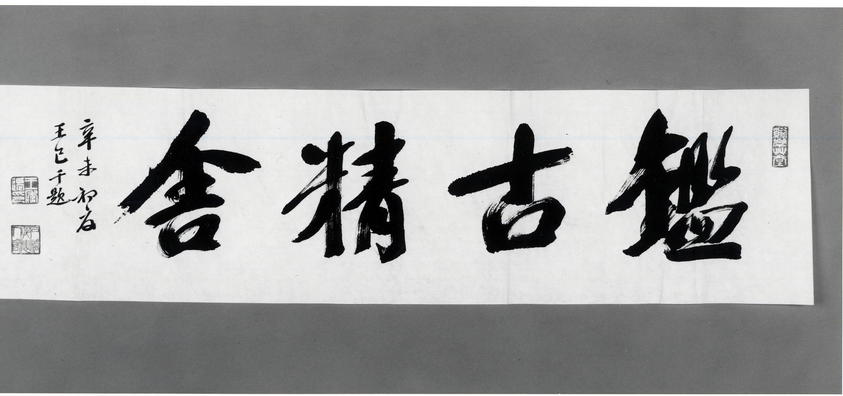 鑑古精舍
辛未初冬
王己千題